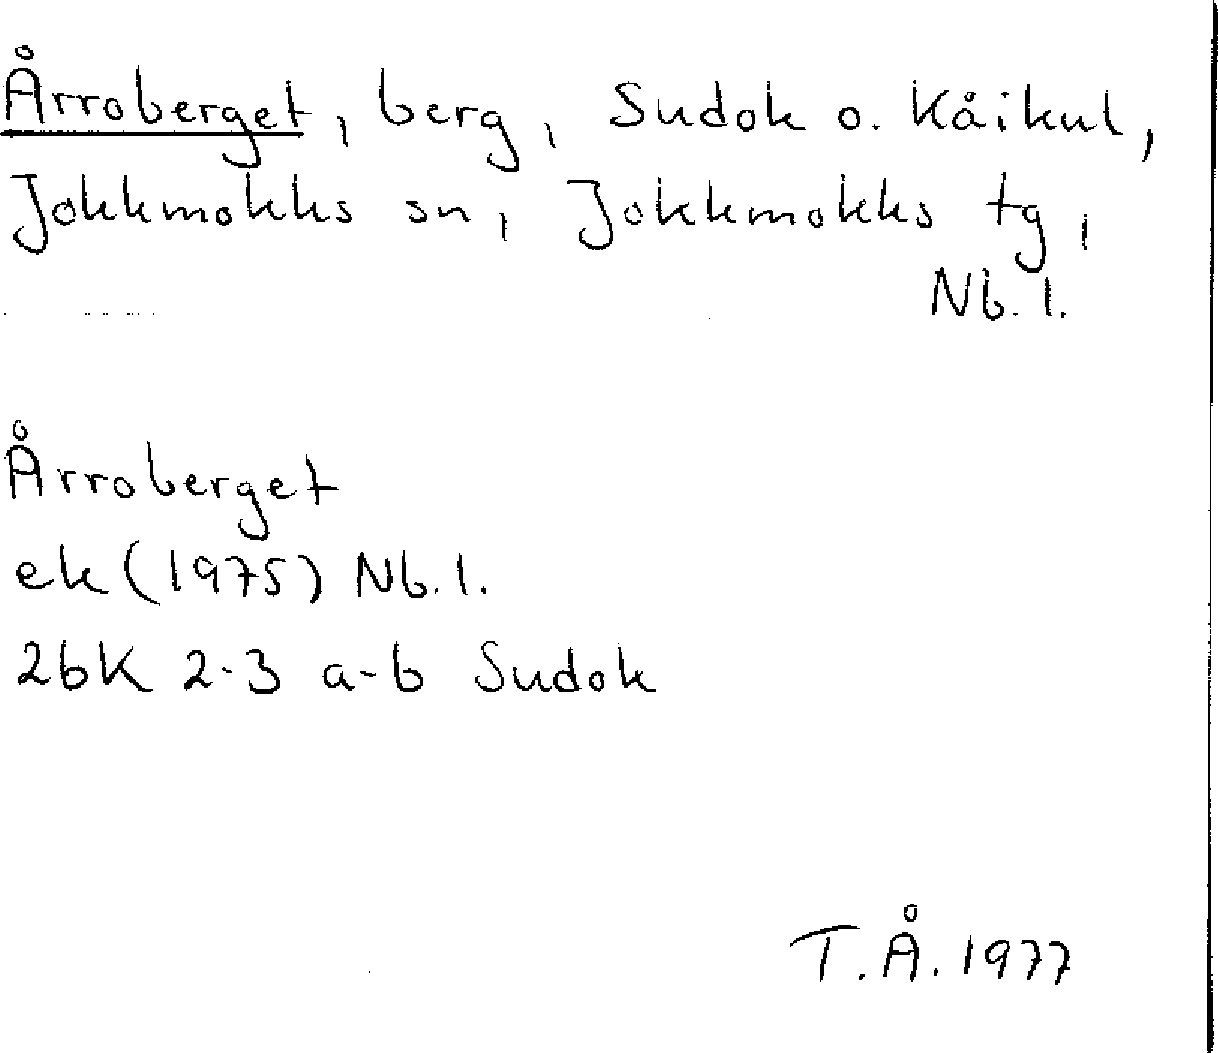 Årroberget, berg, Sudok o. Kåikul,
Jokkmokks sn, Jokkmokks tg,
Nb. l.
Årroberget
ek (1975) Nb. l.
26K 2-3 a-b Sudok
T.Å. 1977